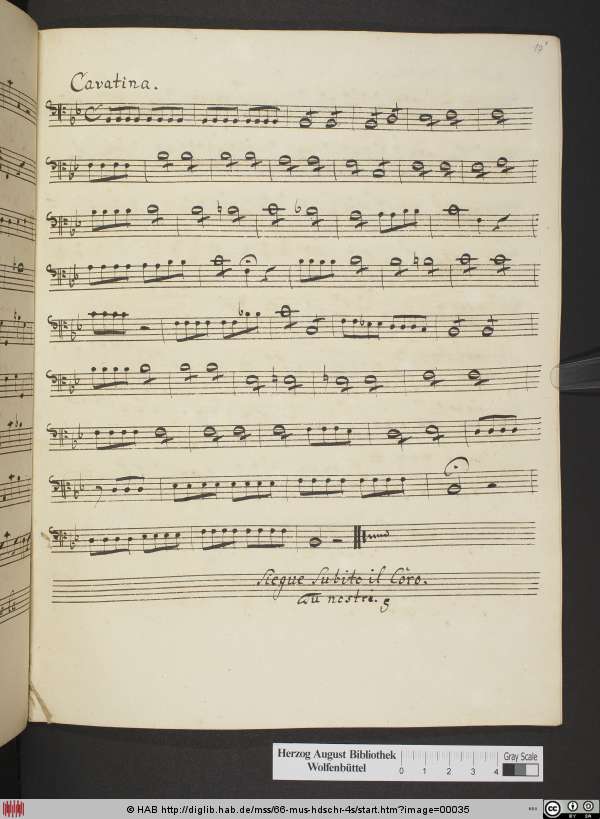 17
Cavatina.
Siegue Subito il Coro.
au nostre. 5
Herzog August Bibliothek
Wolfenbüttel
0 1 2 3 4
Gray Scale
© HAB http://diglib.hab.de/mss/66-mus-hdschr-4s/start.htm?image=00035
cc
BY SA